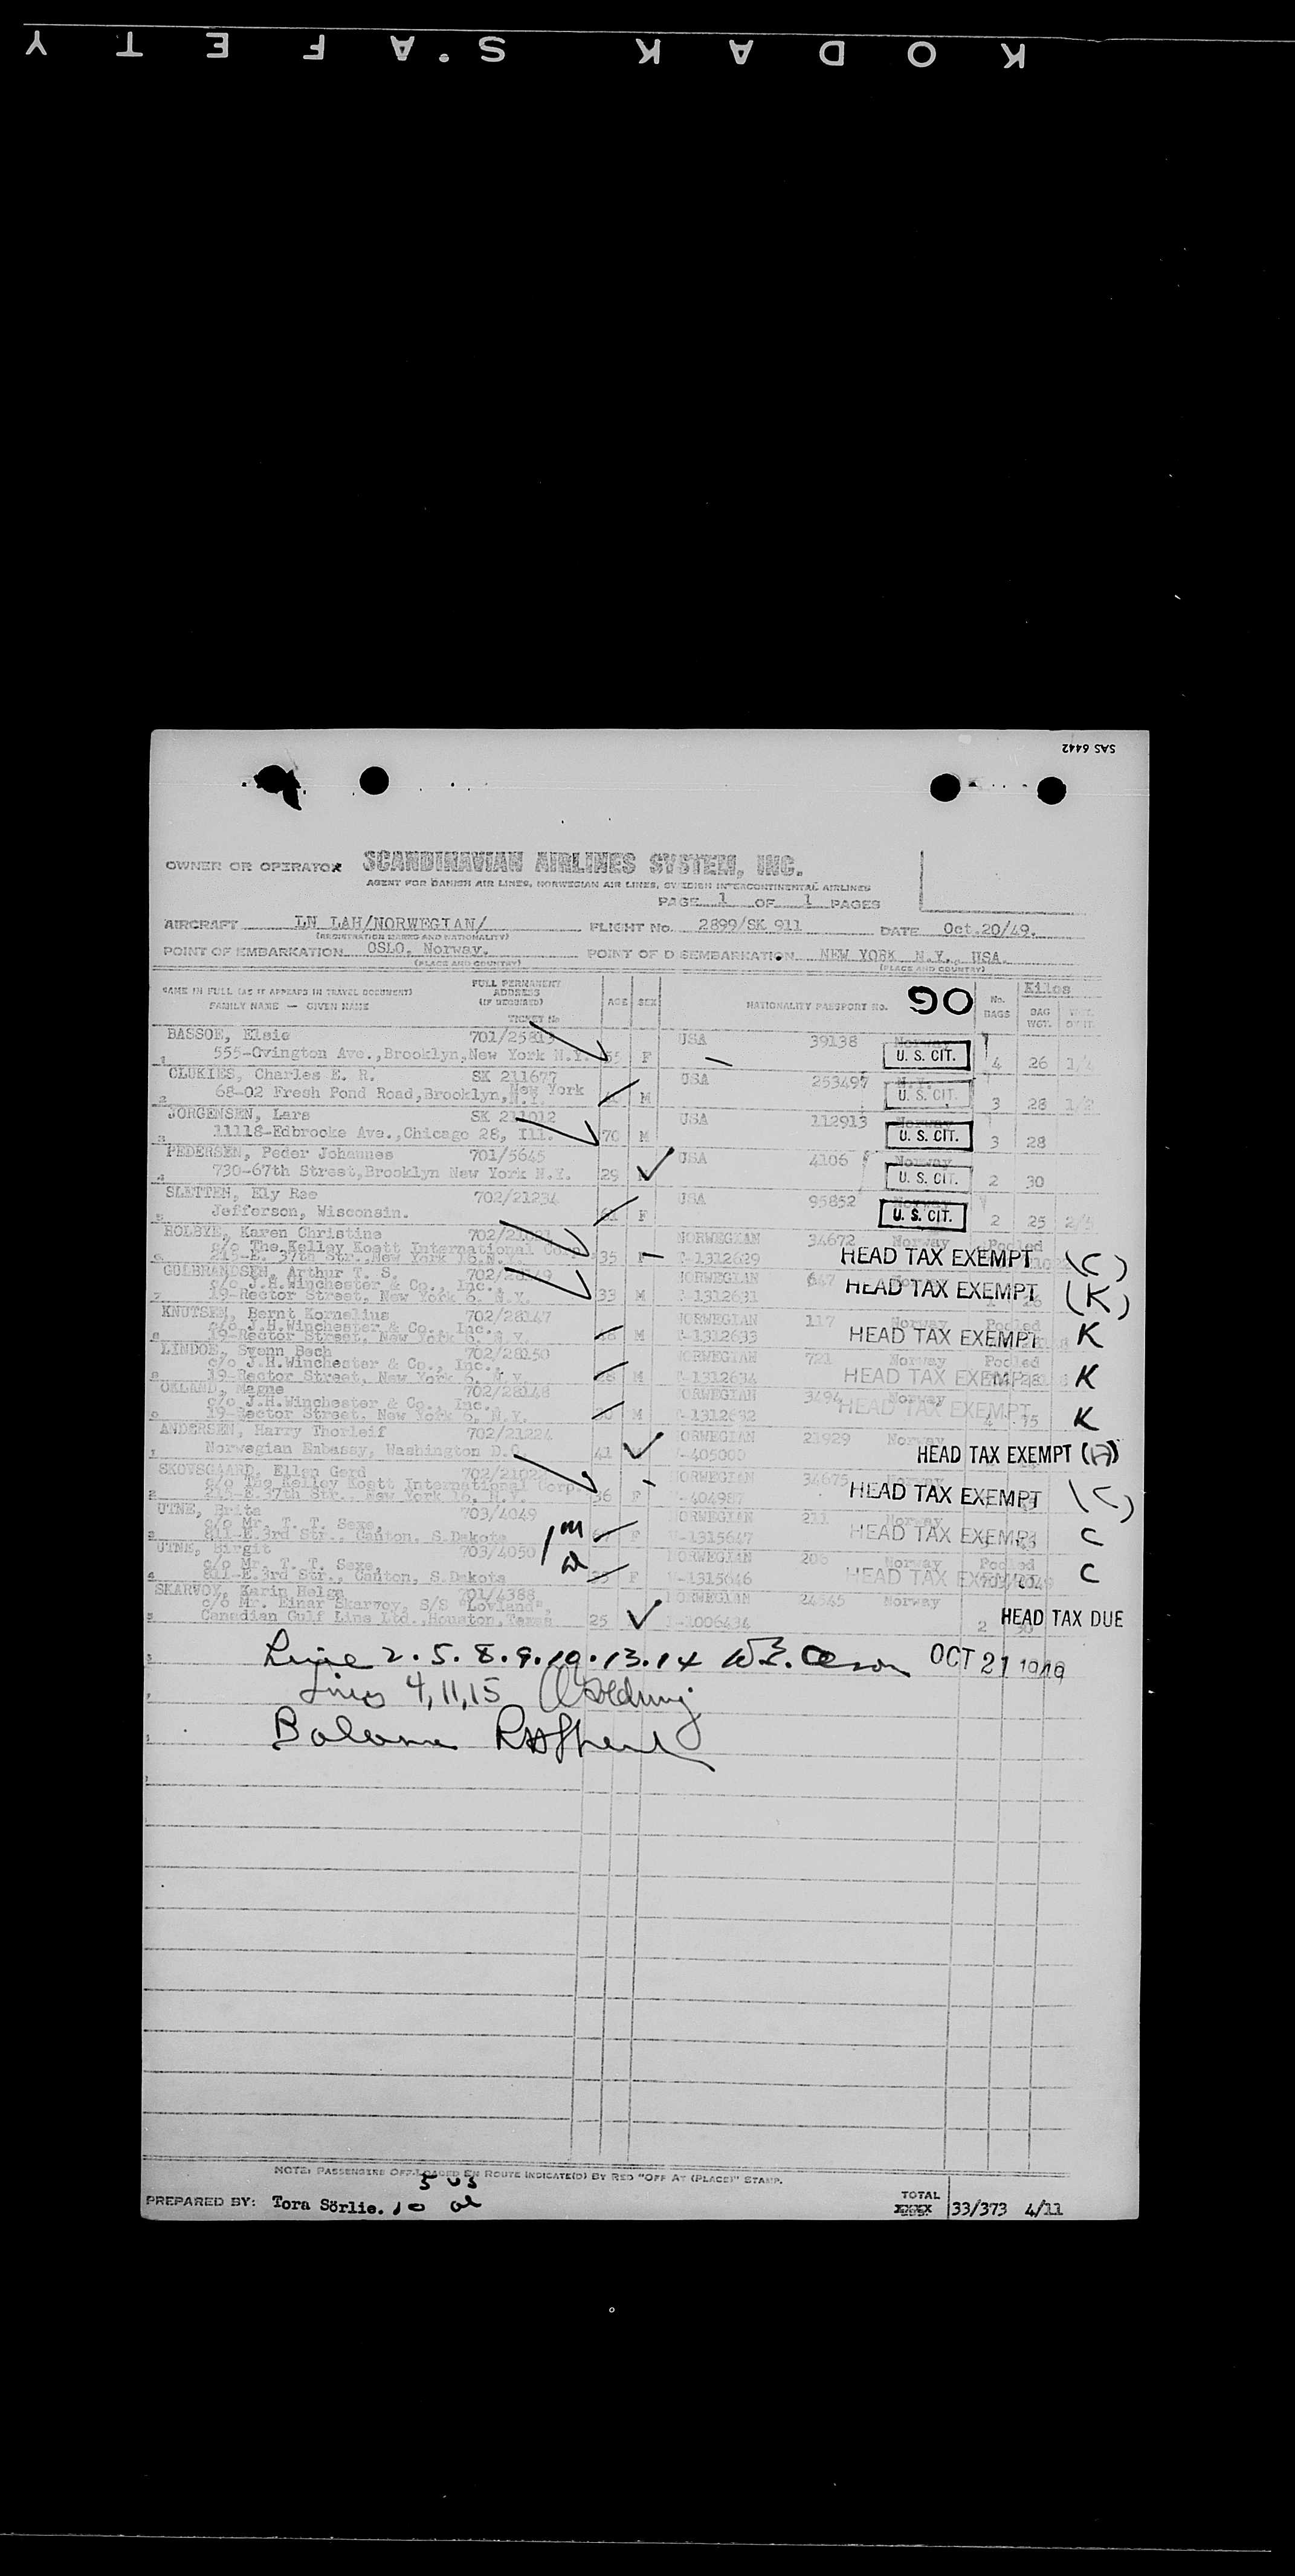 KODAK SAFETY
SAS 6442
OWNER OR OPERATOR SCANDINAVIAN AIRLINES SYSTEM, INC.
AGENT FOR DANISH AIR LINES, NORWEGIAN AIR LINES, SWEDISH INTERCONTINENTAL AIRLINES
PAGE 1 OF 1 PAGES
AIRCRAFT LN LAH/NORWEGIAN/ FLIGHT No. 2899/SK 911 DATE Oct.20/49.
(REGISTRATION MARKS AND NATIONALITY)
POINT OF EMBARKATION OSLO, Norway. POINT OF DISEMBARKATION NEW YORK N.Y., USA.
(PLACE AND COUNTRY) (PLACE AND COUNTRY)
NAME IN FULL (AS IT APPEARS IN TRAVEL DOCUMENT) FULL PERMANENT ADDRESS (IF REQUIRED) AGE SEX NATIONALITY PASSPORT No. 90 No. BAGS Kilos
FAMILY NAME — GIVEN NAME TICKET No BAG WGT.
BASSOE, Elsie 701/25813 USA 39138 Norway
1 555-Ovington Ave.,Brooklyn,New York N.Y. F U. S. CIT. 4 26 1/4
CLUKIES, Charles E. R. SK 211677 USA 253497 N.Y.
2 68-02 Fresh Pond Road,Brooklyn,New York N.Y. M U. S. CIT. 3 28 1/2
JORGENSEN, Lars SK 211012 USA 112913 Norway
3 11118-Edbrooke Ave.,Chicago 28, Ill. 70 M U. S. CIT. 3 28
PEDERSEN, Peder Johannes 701/5645 USA 4106 Norway
4 730-67th Street,Brooklyn New York N.Y. 29 U. S. CIT. 2 30
SLETTEN, Ely Rae 702/21234 USA 95852 Norway
5 Jefferson, Wisconsin. F U. S. CIT. 2 25 2/5
HOLBYE, Karen Christine NORWEGIAN 34672 Norway Pooled
c/o The Kelley Koett International Corp.
215-E. 37th Str.,New York 16.N.Y. 35 F 1312629 HEAD TAX EXEMPT (C)
GULBRANDSEN, Arthur T. S. NORWEGIAN 647 Norway
c/o J.H.Winchester & Co., Inc.,
19-Rector Street, New York 6. N.Y. 33 M 1312631 HEAD TAX EXEMPT (K)
KNUTSEN, Bernt Kornelius 702/28147 NORWEGIAN 117 Norway Pooled
c/o J.H.Winchester & Co., Inc.
19-Rector Street, New York 6. N.Y. M 1312633 HEAD TAX EXEMPT K
LINDOE, Svenn Bech 702/28150 NORWEGIAN 721 Norway Pooled
c/o J.H.Winchester & Co., Inc.,
19-Rector Street, New York 6, N.Y. M 1312634 HEAD TAX EXEMPT K
OKLAND, Magne 702/28148 NORWEGIAN 3494 Norway
c/o J.H.Winchester & Co., Inc.
19-Rector Street, New York 6, N.Y. M 1312632 HEAD TAX EXEMPT K
ANDERSEN, Harry Thorleif 702/21224 NORWEGIAN 21929 Norway
Norwegian Embassy, Washington D.C. 41 405000 HEAD TAX EXEMPT (A)
SKOVSGAARD, Ellen Gerd NORWEGIAN 34675
c/o The Kelley Koett International Corp.
215-E. 37th Str., New York 16, N.Y. 36 F 404987 HEAD TAX EXEMPT (C)
UTNE, Brita 703/4049 NORWEGIAN 211 Norway
c/o Mr. T. T. Sexe,
811-E.3rd Str., Canton, S.Dakota F 1315647 HEAD TAX EXEMPT C
UTNE, Birgit 703/4050 NORWEGIAN 208 Norway Pooled
c/o Mr. T. T. Sexe,
811-E.3rd Str., Canton, S.Dakota F 1315646 HEAD TAX EXEMPT C
SKARVOY, Karin Helga 701/4388 NORWEGIAN 24545 Norway
c/o Mr. Einar Skarvoy, S/S "Lovland",
Canadian Gulf Line Ltd.,Houston,Texas 25 1006434 2 30 HEAD TAX DUE
Line 2.5.8.9.10.13.14 OCT 21 1949
Lines 4,11,15
Balance
NOTE: PASSENGERS OFF-LOADED EN ROUTE INDICATE(D) BY RED "OFF AT (PLACE)" STAMP.
5 US
PREPARED BY: Tora Sörlie. 10 al TOTAL 33/373 4/11